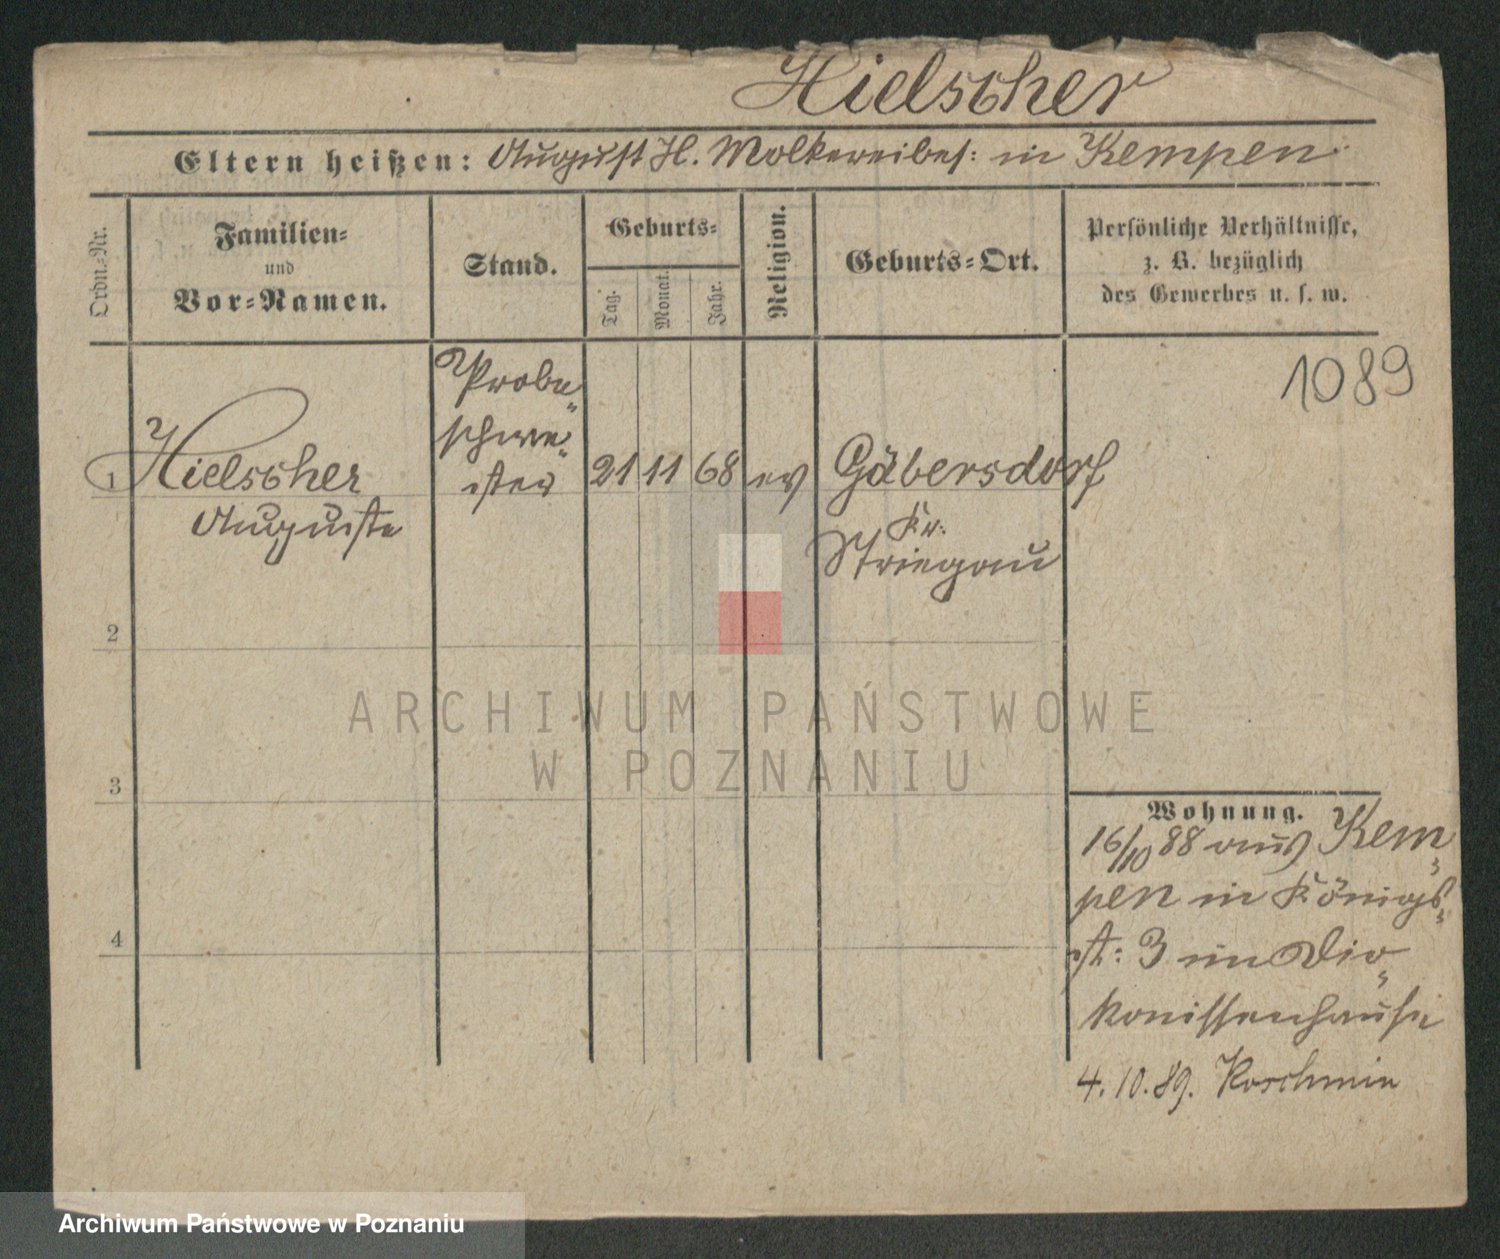 Hielscher
Eltern heißen: August H. Molkereibes: in Kempen
Ordn.-Nr.
Familien-
und
Vor-Namen.
Stand.
Geburts-
Tag.
Monat.
Jahr.
Religion.
Geburts-Ort.
Persönliche Verhältnisse,
z. B. bezüglich
des Gewerbes u. s. w.
1089
1 Hielscher
Auguste
Probe-
schwe-
ster
21 11 68 ev
Gäbersdorf
Kr.
Striegau
2
3
4
Wohnung.
16/10 88 aus Kem-
pen in Königs-
st: 3 im Dia-
konissenhause
4.10.89. Koschmin
ARCHIWUM PAŃSTWOWE
W POZNANIU
Archiwum Państwowe w Poznaniu